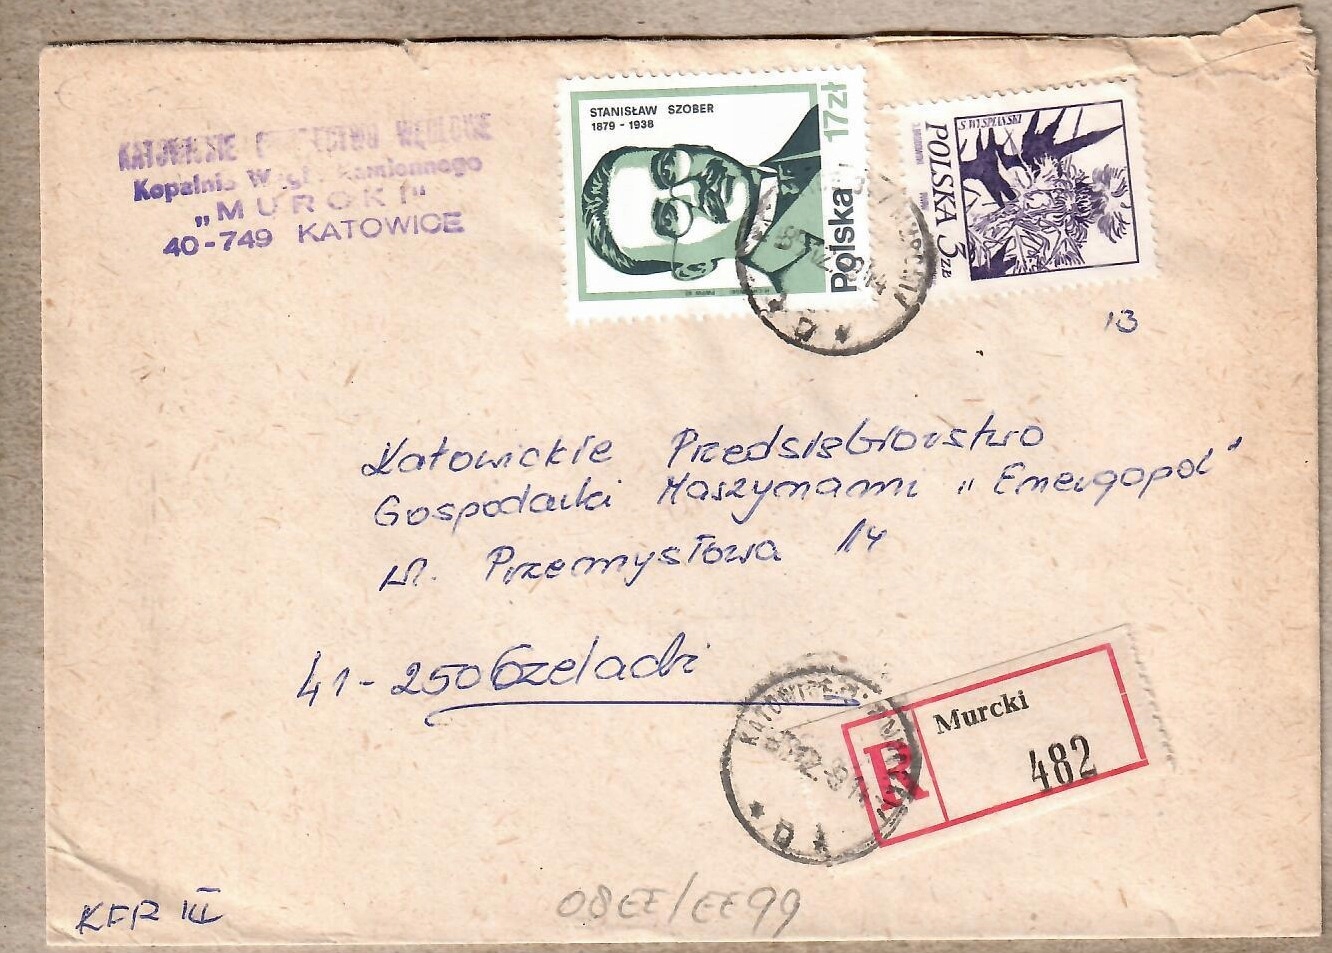 KATOWICKIE WĘGLOWE
Kopalnia Węgla Kamiennego
„MURCKI"
40-749 KATOWICE
STANISŁAW SZOBER
1879 - 1938
Polska 17zł
S. WYSPIAŃSKI
POLSKA 3 ZŁ
13
Katowickie Przedsiębiorstwo
Gospodarki Maszynami „Energopol"
ul. Przemysłowa 14
41-250 Czeladź
KATOWICE
* D *
R
Murcki
482
KFR III
08EE/EE99